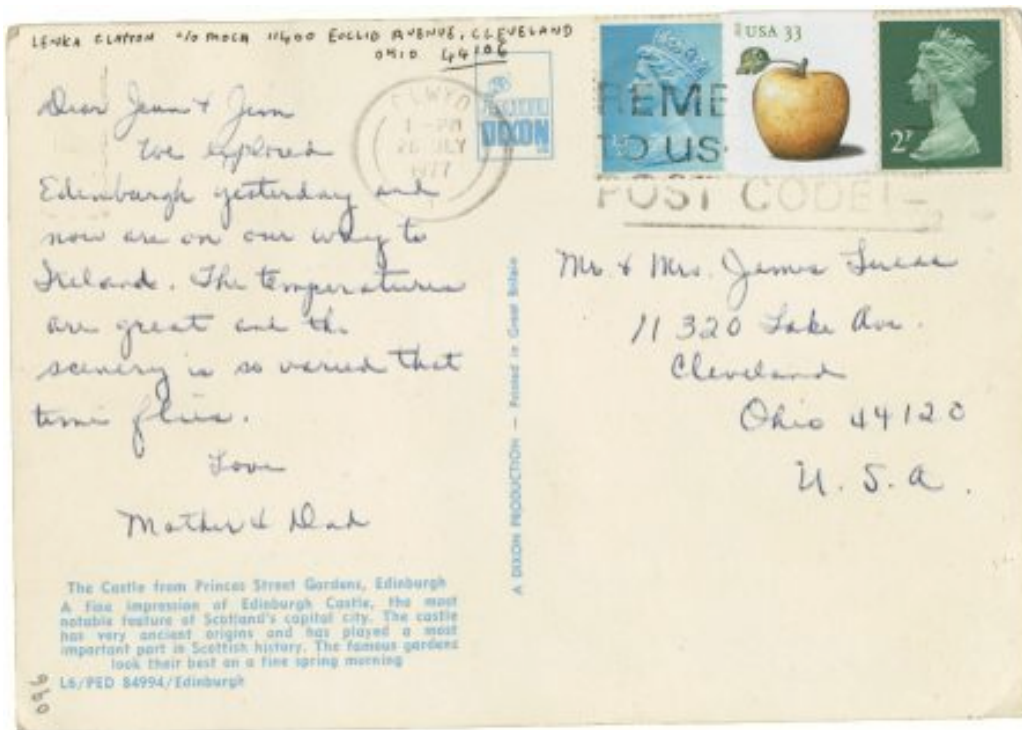 LENKA CLAYTON c/o MOCA 11400 EUCLID AVENUE, CLEVELAND
OHIO 44106
Dear Jean & Jim
We explored
Edinburgh yesterday and
now are on our way to
Ireland. The temperatures
are great and the
scenery is so varied that
time flies.
Love
Mother & Dad
The Castle from Princes Street Gardens, Edinburgh
A fine impression of Edinburgh Castle, the most
notable feature of Scotland's capital city. The castle
has very ancient origins and has played a most
important part in Scottish history. The famous gardens
look their best on a fine spring morning
L6/PED 84994/Edinburgh
960
A DIXON PRODUCTION — Printed in Great Britain
DIXON
CLWYD
1 - PM
JLY
1977
USA 33
2
REME
TO US
POST CODE
Mr & Mrs. James Lucas
11320 Lake Ave.
Cleveland
Ohio 44120
U. S. A.